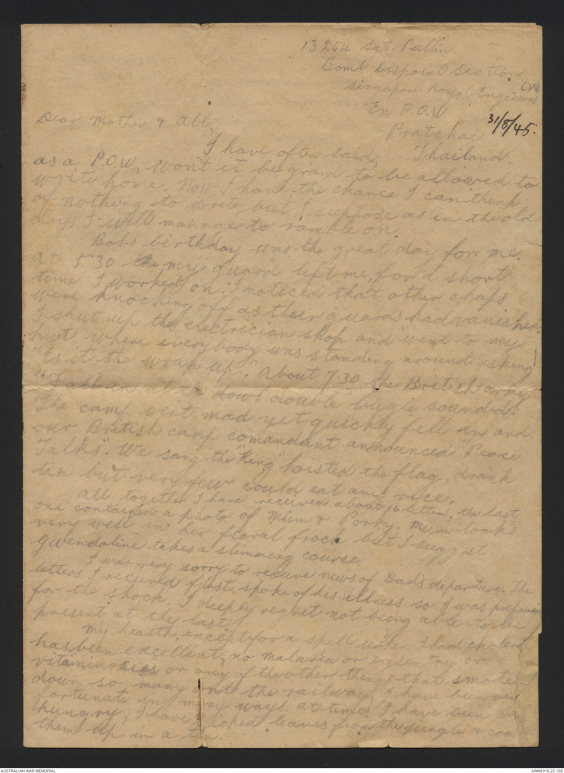 13264 Sgt. Pullin
Bomb Disposal Section
Singapore Royal Engineers (V)
Ex P.O.W.
Pratchai 31/8/45.
Thailand.
Dear Mother & All,
I have often said,
as a P.O.W, won't it be grand to be allowed to
write home. Now I have the chance I can think
of nothing to write but I suppose as in the old
days I will manage to ramble on.
Bobs birthday was the great day for me.
At 5.30 my guard left me for a short
time I worked on. I noticed that other chaps
were knocking off as their guards had vanished.
I shut up the electrician shop and went to my
hut where everybody was standing around asking
"Is it the wrap up". About 7.30 the British army
"Fall in at the double bugle sounded
The camp went mad yet quickly fell in and
our British camp comandant announced "Peace
Talks". We sang the King hoisted the flag, drank
tea but very few could eat any rice.
All together I have received about 16 letters, the last
one contained a photo of Mum & Porky. Mum looks
very well in her floral frock but I suggest
Gwendoline takes a slimming course.
I was very sorry to receive news of Dads departure. The
letters I received first spoke of his illness so I was prepared
for the shock. I deeply regret not being able to be
present at the last.
My health, except for a spell when I had cholera
has been excellent, no malaria or
vitaminosies or any of the other things that smote
down so many on the railway. I have been very
fortunate in many ways. At times I have been
hungry, I have picked leaves from the jungle &
them up in a tin.
AUSTRALIAN WAR MEMORIAL